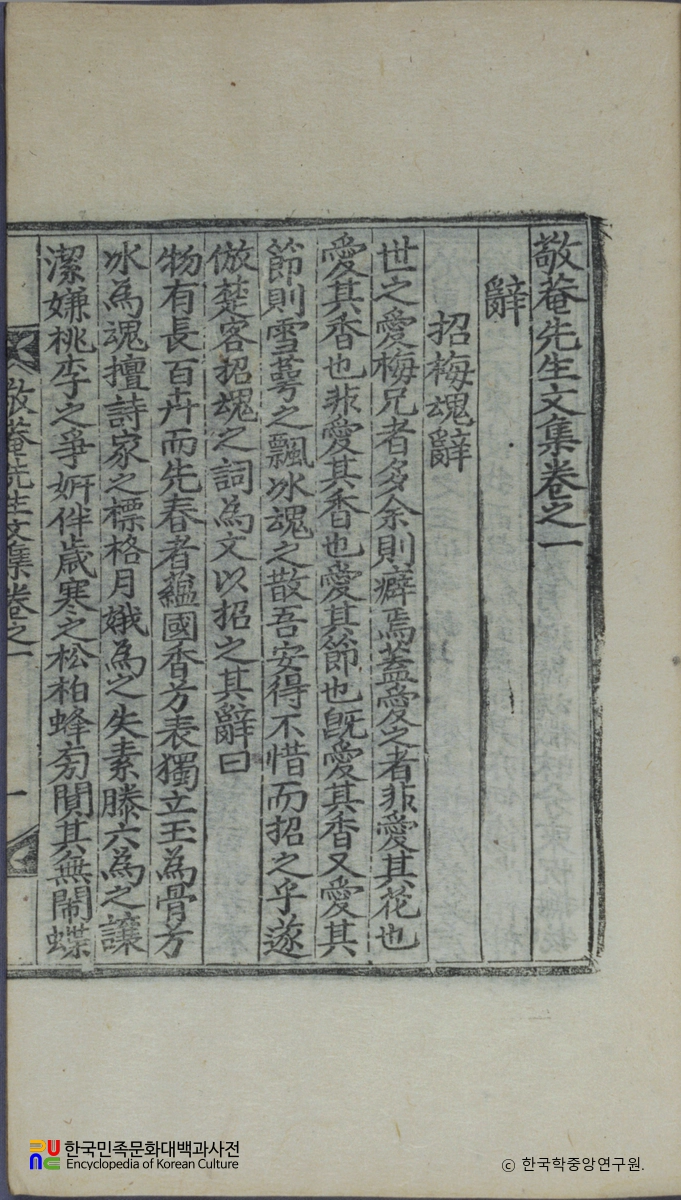 敬菴先生文集卷之一
辭
招梅魂辭
世之愛梅兄者多余則癖焉蓋愛之者非愛其花也
愛其香也非愛其香也愛其節也旣愛其香又愛其
節則雪萼之飄冰魂之散吾安得不惜而招之乎遂
倣楚客招魂之詞爲文以招之其辭曰
物有長百卉而先春者蘊國香方表獨立玉爲骨方
冰爲魂擅詩家之標格月娥爲之失素滕六爲之讓
潔嫌桃李之爭姸伴歲寒之松柏蜂房閴其無鬧蝶
敬菴先生文集卷之一 一
한국민족문화대백과사전
Encyclopedia of Korean Culture
ⓒ 한국학중앙연구원.